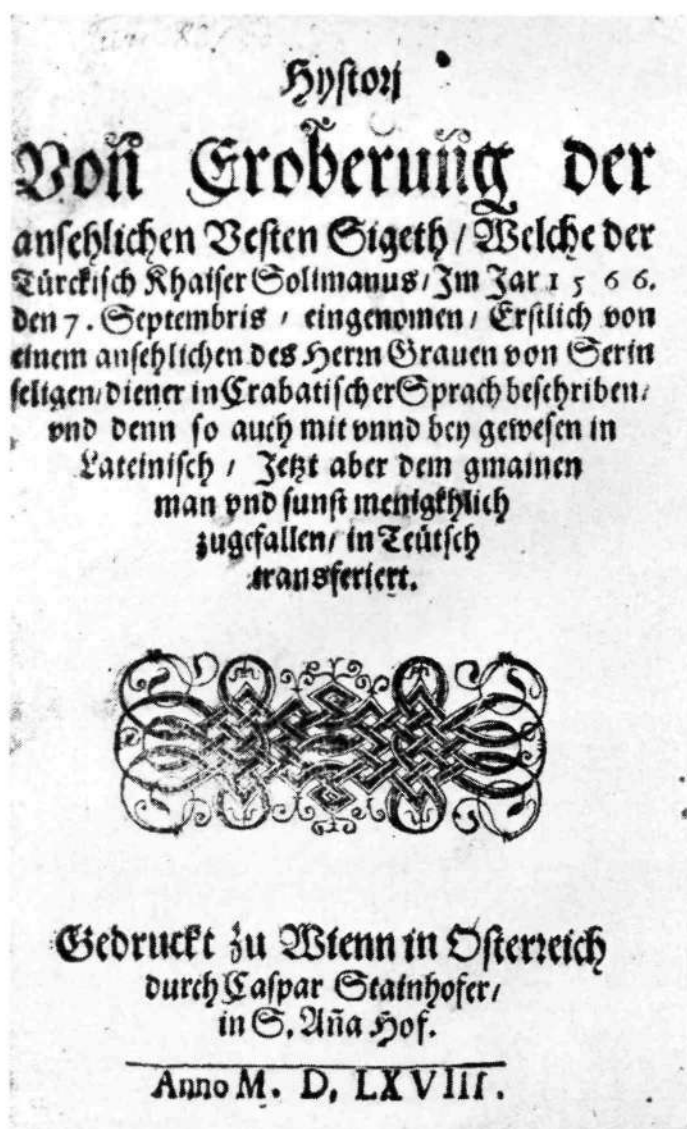 Hystorj
Von Eroberung der
ansehlichen Vesten Sigeth / Welche der
Türckisch Khaiser Solimanus / Im Jar 1566.
den 7. Septembris / eingenomen / Erstlich von
einem ansehlichen des Herrn Grauen von Serin
seligen / diener in Crabatischer Sprach beschriben /
vnd denn so auch mit vnnd bey gewesen in
Lateinisch / Jetzt aber dem gmainen
man vnd sunst menigkhlich
zugefallen / in Teütsch
transferiert.
Gedruckt zu Wienn in Osterreich
durch Caspar Stainhofer /
in S. Aña Hof.
Anno M. D. LXVIII.